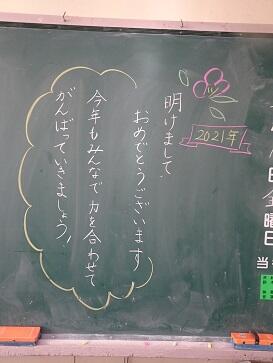 2021年
明けまして
おめでとうございます
今年もみんなで力を合わせて
がんばっていきましょう!
日
曜
日
当